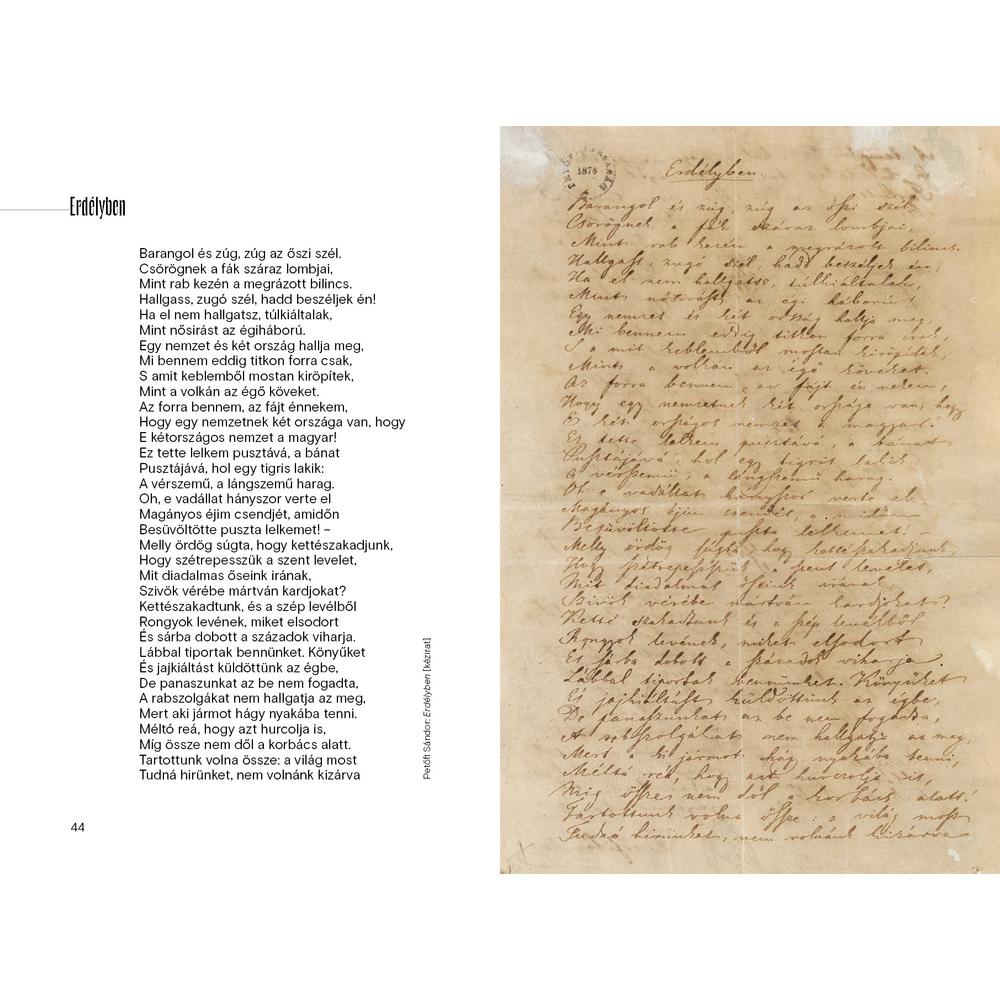 Erdélyben
Barangol és zúg, zúg az őszi szél.
Csörögnek a fák száraz lombjai,
Mint rab kezén a megrázott bilincs.
Hallgass, zugó szél, hadd beszéljek én!
Ha el nem hallgatsz, túlkiáltalak,
Mint nősirást az égiháború.
Egy nemzet és két ország hallja meg,
Mi bennem eddig titkon forra csak,
S amit keblemből mostan kiröpítek,
Mint a volkán az égő köveket.
Az forra bennem, az fájt énnekem,
Hogy egy nemzetnek két országa van, hogy
E kétországos nemzet a magyar!
Ez tette lelkem pusztává, a bánat
Pusztájává, hol egy tigris lakik:
A vérszemű, a lángszemű harag.
Oh, e vadállat hányszor verte el
Magányos éjim csendjét, amidőn
Besüvöltötte puszta lelkemet! –
Melly ördög súgta, hogy kettészakadjunk,
Hogy szétrepesszük a szent levelet,
Mit diadalmas őseink irának,
Szivök vérébe mártván kardjokat?
Kettészakadtunk, és a szép levélből
Rongyok levének, miket elsodort
És sárba dobott a századok viharja.
Lábbal tiportak bennünket. Könyűket
És jajkiáltást küldöttünk az égbe,
De panaszunkat az be nem fogadta,
A rabszolgákat nem hallgatja az meg,
Mert aki jármot hágy nyakába tenni.
Méltó reá, hogy azt hurcolja is,
Míg össze nem dől a korbács alatt.
Tartottunk volna össze: a világ most
Tudná hirünket, nem volnánk kizárva
Petőfi Sándor: Erdélyben [kézirat]
44
1876
Erdélyben.
Barangol és zúg, zúg az őszi szél,
Csörögnek a fák száraz lombjai,
Mint rab kezén a megrázott bilincs.
Hallgass, zugó szél, hadd beszéljek én;
Ha el nem hallgatsz, túlkiáltalak,
Mint nősirást az égi háború!
Egy nemzet és két ország hallja meg,
Mi bennem eddig titkon forra csak,
S a mit keblemből mostan kiröpítek,
Mint a volkán az égő köveket.
Az forra bennem, az fájt én nekem,
Hogy egy nemzetnek két országa van, hogy
E két országos nemzet a magyar!
Ez tette lelkem pusztává, a bánat
Pusztájává, hol egy tigris lakik
A vérszemű, a lángszemű harag.
Oh e vadállat hányszor verte el
Magányos éjim csendét, a midőn
Besüvöltötte puszta lelkemet! –
Melly ördög súgta, hogy kettészakadjunk,
Hogy szétrepesszük a szent levelet,
Mit diadalmas őseink irának,
Szivök vérébe mártván kardjokat?
Ketté szakadtunk és a szép levélből
Rongyok levének, miket elsodort
És sárba dobott a századok viharja.
Lábbal tiportak bennünket. Könyűket
És jajkiáltást küldöttünk az égbe,
De panaszunkat az be nem fogadta,
A rabszolgákat nem hallgatja az meg,
Mert a ki jármot hágy nyakába tenni,
Méltó reá, hogy azt hurczolja is,
Mig össze nem dől a korbács alatt!
Tartottunk volna össze: a világ most
Tudná hirünket, nem volnánk kizárva